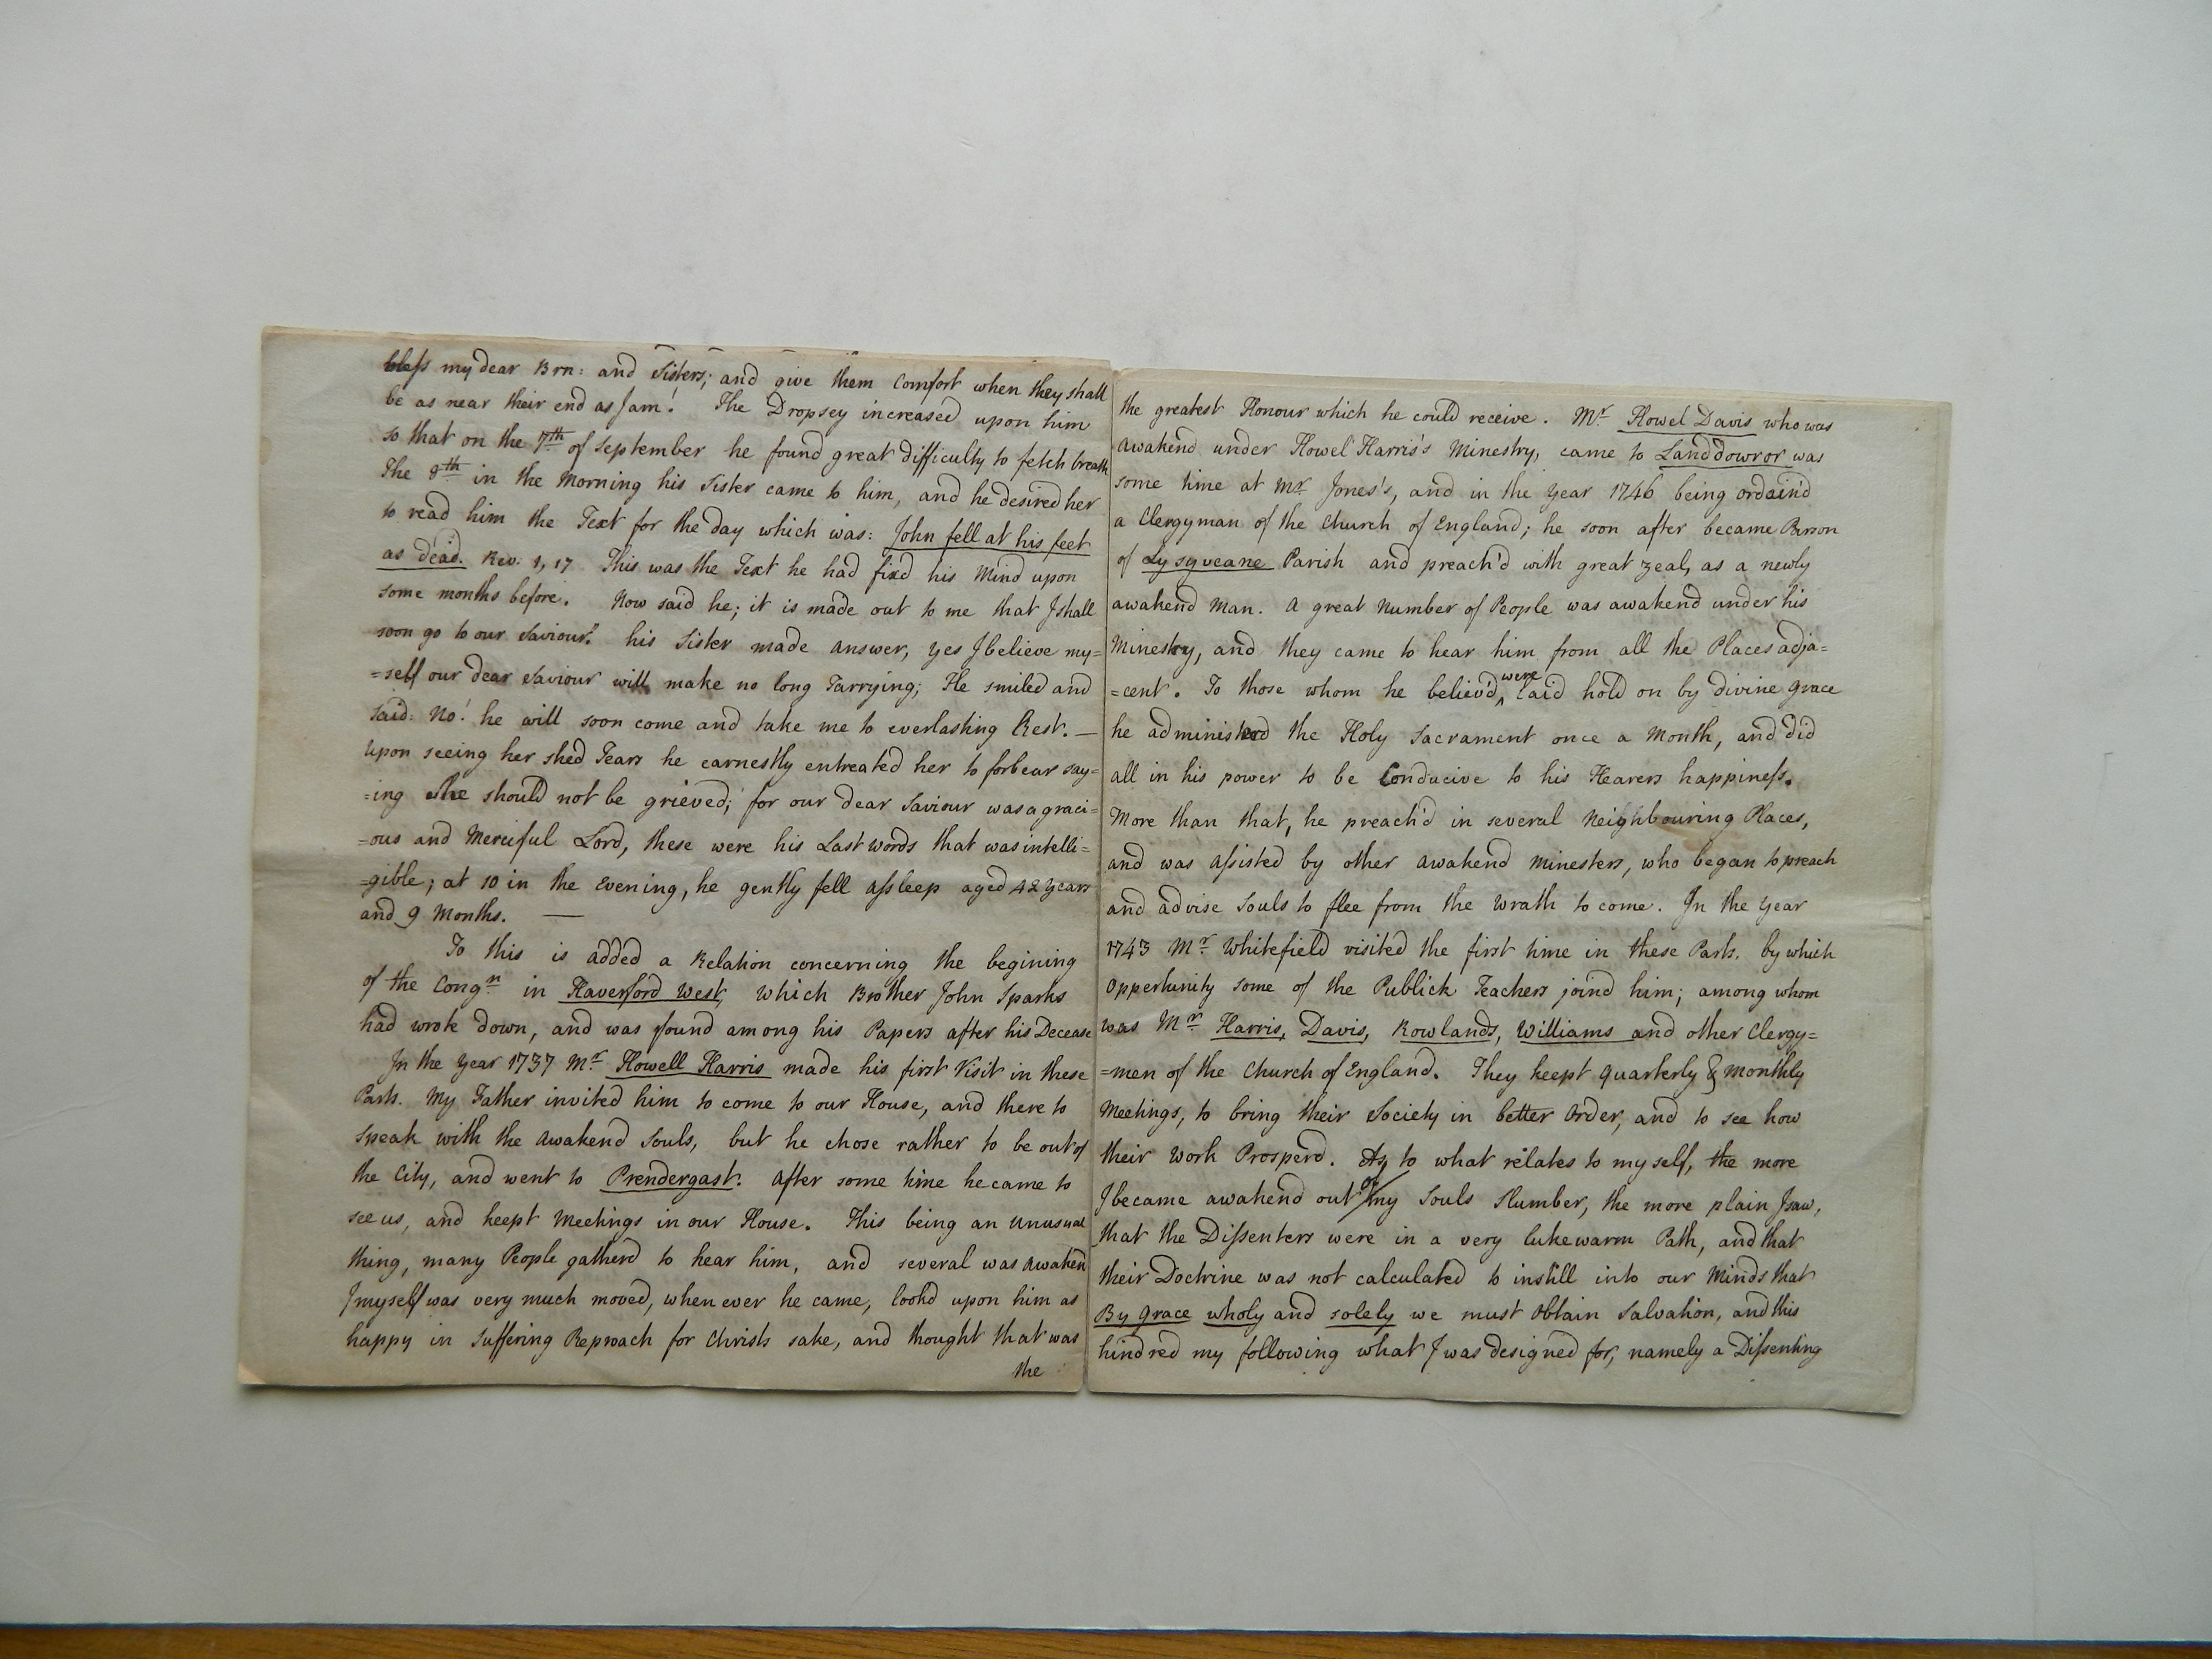 bless my dear Brn: and Sisters; and give them Comfort when they shall
be as near their end as I am! The Dropsey increased upon him
so that on the 7th of September he found great difficulty to fetch breath
The 8th in the Morning his Sister came to him, and he desired her
to read him the Text for the day which was: John fell at his feet
as dead. Rev: 1, 17. This was the Text he had fixd his Mind upon
some months before. Now said he; it is made out to me that I shall
soon go to our Saviour. his Sister made answer, yes I believe my=
=self our dear Saviour will make no long Tarrying; He smiled and
said: No! he will soon come and take me to everlasting Rest. —
upon seeing her shed Tears he earnestly entreated her to forbear say=
=ing she should not be grieved; for our dear Saviour was a graci=
=ous and Merciful Lord, these were his Last words that was intelli=
=gible; at 10 in the Evening, he gently fell assleep aged 42 years
and 9 Months. —
To this is added a Relation concerning the begining
of the Congn in Haverford West, which Brother John Sparks
had wrote down, and was found among his Papers after his Decease
In the year 1737 Mr Howell Harris made his first Visit in these
Parts. My Father invited him to come to our House, and there to
speak with the awakend Souls, but he chose rather to be out of
the City, and went to Prendergast. After some time he came to
see us, and keept Meetings in our House. This being an unusual
thing, many People gatherd to hear him, and several was awaken
I myself was very much moved, when ever he came, lookd upon him as
happy in suffering Reproach for Christs sake, and thought that was
the
the greatest Honour which he could receive. Mr Howel Davis who was
awakend under Howel Harris's Minestry, came to Landdowror was
some time at Mr Jones's, and in the year 1746 being ordain'd
a Clergyman of the Church of England; he soon after became Parson
of Lysyveane Parish and preach'd with great zeal, as a newly
awakend Man. A great Number of People was awakend under his
Minestry, and they came to hear him from all the Places adja=
=cent. To those whom he believ'd, were laid hold on by divine grace
he administerd the Holy Sacrament once a Month, and did
all in his power to be Conducive to his Hearers happiness.
More than that, he preach'd in several Neighbouring Places,
and was assisted by other awakend Minesters, who began to preach
and advise Souls to flee from the Wrath to come. In the year
1743 Mr Whitefield visited the first time in these Parts. by which
oppertunity some of the Publick Teachers joind him; among whom
was Mr Harris, Davis, Rowlands, Williams and other Clergy=
=men of the Church of England. They keept quarterly & monthly
Meetings, to bring their Society in better Order, and to see how
their Work Prosperd. As to what relates to my self, the more
I became awakend out of my Souls Slumber, the more plain I saw,
that the Dissenters were in a very lukewarm Path, and that
their Doctrine was not calculated to instill into our Minds that
By grace wholy and solely we must obtain Salvation, and this
hindred my following what I was designed for, namely a Dissenting